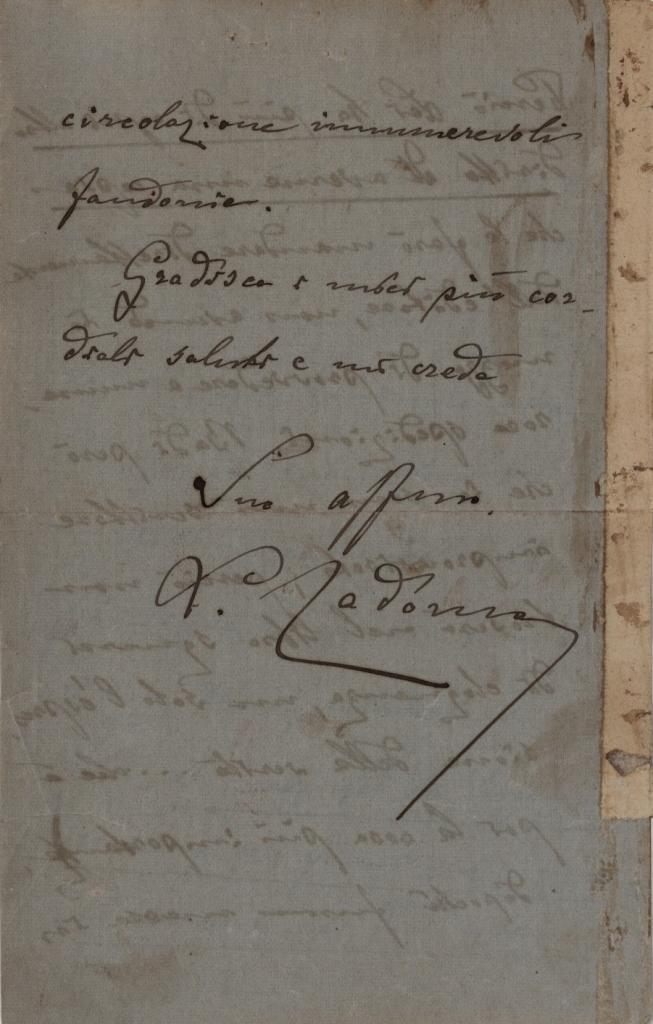 circolazione innumerevoli
fandonie.
Gradisca i miei più cor-
diali saluti e mi creda
Suo affmo.
R. Cadorna